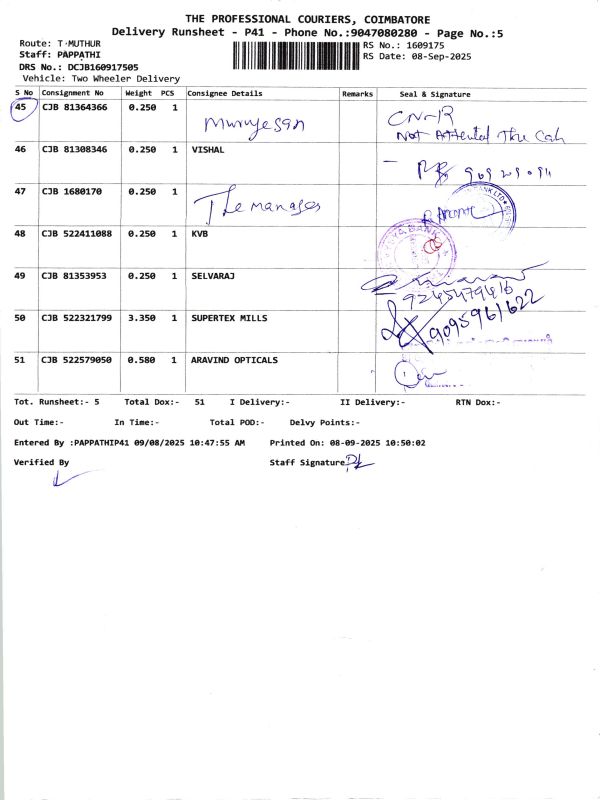 THE PROFESSIONAL COURIERS, COIMBATORE
Delivery Runsheet - P41 - Phone No.:9047080280 - Page No.:5
Route: T.MUTHUR
RS No.: 1609175
Staff: PAPPATHI
RS Date: 08-Sep-2025
DRS No.: DCJB160917505
Vehicle: Two Wheeler Delivery
S No Consignment No Weight PCS Consignee Details Remarks Seal & Signature
45 CJB 81364366 0.250 1 Muruyesan CN-R
Not Attented The Call
46 CJB 81308346 0.250 1 VISHAL
47 CJB 1680170 0.250 1 The manager
48 CJB 522411088 0.250 1 KVB
49 CJB 81353953 0.250 1 SELVARAJ
9245479416
50 CJB 522321799 3.350 1 SUPERTEX MILLS 9095961622
51 CJB 522579050 0.580 1 ARAVIND OPTICALS
Tot. Runsheet:- 5 Total Dox:- 51 I Delivery:- II Delivery:- RTN Dox:-
Out Time:- In Time:- Total POD:- Delvy Points:-
Entered By :PAPPATHIP41 09/08/2025 10:47:55 AM Printed On: 08-09-2025 10:50:02
Verified By Staff Signature